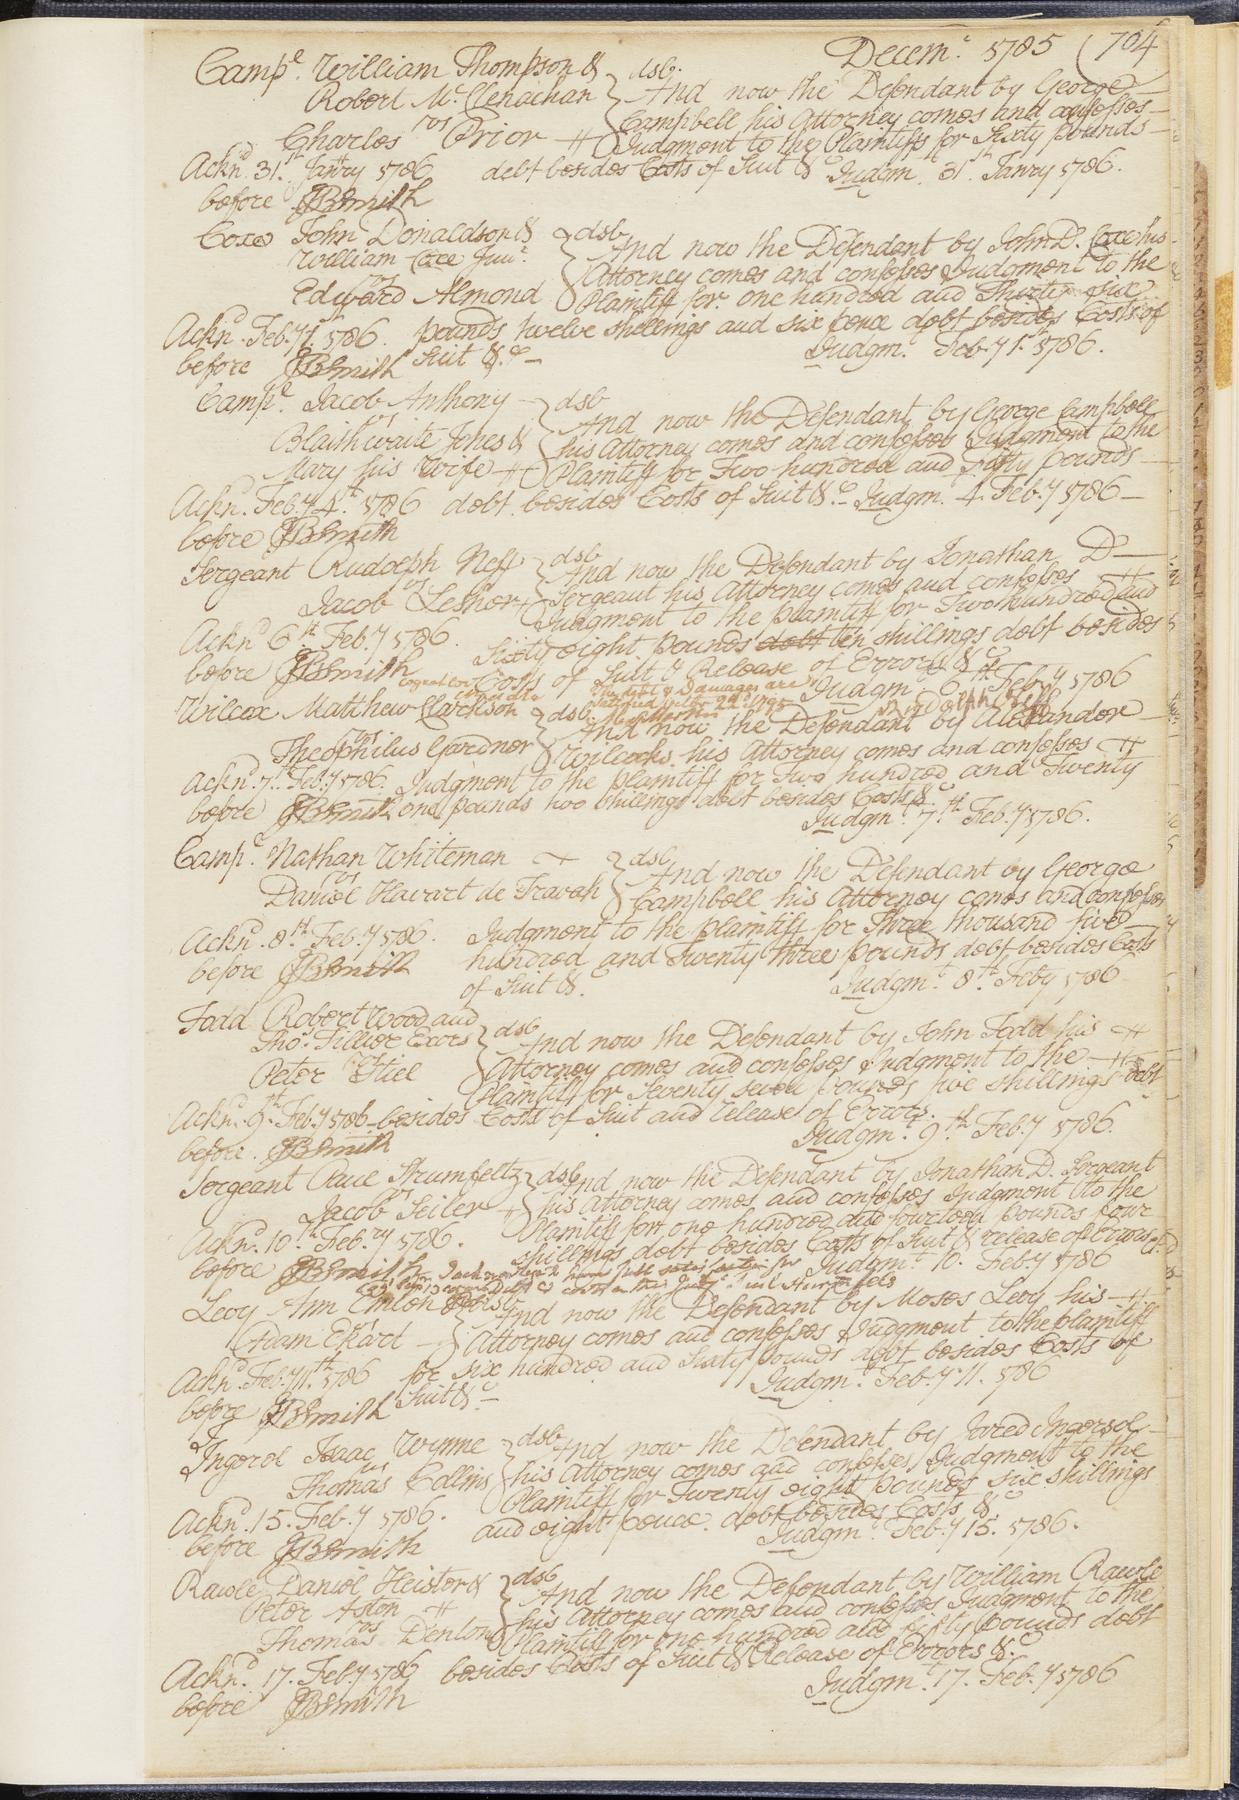 Decemr. 1785 (704
Campl. William Thompson & } dsb.
Robert McClenachan } And now the Defendant by George
vs } Campbell his Attorney comes and confesses
Charles Prior } Judgment to the Plaintiffs for Sixty pounds
Acknd. 31st. Janry 1786 debt besides Costs of Suit &c Judgm. 31st. Janry 1786.
before JBSmith
Coxe John Donaldson & } dsb
William Coxe Junr. } And now the Defendant by John D. Coxe his
vs } Attorney comes and confesses Judgment to the
Edward Almond } Plaintiff for one hundred and Thirty Six
Acknd. Feb.y 1st. 1786. pounds twelve shillings and six pence debt besides Costs of
before JBSmith Suit &c. Judgm. Feb.y 1st. 1786.
Campl. Jacob Anthony } dsb
vs } And now the Defendant by George Campbell
Blaithwaite Jones & } his Attorney comes and confesses Judgment to the
Mary his Wife } Plaintiff for Two hundred and Fifty pounds
Acknd. Feb.y 4th. 1786 debt besides Costs of Suit &c. Judgm. 4. Feb.y 1786
before JBSmith
Sergeant Rudolph Neff } dsb
vs } And now the Defendant by Jonathan D
Jacob Lesher } Sergeant his Attorney comes and confesses
Judgment to the plaintiff for Two hundred and
Acknd 6th Feb.y 1786. Sixty eight pounds debt ten shillings debt besides
before JBSmith Costs of Suit & Release of Errors &c
Judgm. 6th Feb.y 1786
The debt & Damages are
satisfied 22d. 1795
Wilcox Matthew Clarkson } dsb
vs } And now the Defendant by Alexander
Theophilus Gardner } Wilcocks his Attorney comes and confesses
Acknd. 7th. Feb.y 1786. Judgment to the plaintiff for Two hundred and Twenty
before JBSmith one pounds two shillings debt besides Costs &c
Judgm. 7th. Feb.y 1786.
Campl. Nathan Whiteman } dsb
vs } And now the Defendant by George
Daniel Havart de Travah } Campbell his Attorney comes and confesses
Acknd. 8th. Feb.y 1786. Judgment to the plaintiff for Three thousand five
before JBSmith hundred and Twenty three pounds debt besides Costs
of Suit &. Judgmt. 8th. Feby 1786
Todd Robert Wood and
Thos. Tillier Exors } dsb
vs } And now the Defendant by John Todd his
Peter Stiee } Attorney comes and confesses Judgment to the
Plaintiffs for Seventy seven pounds five shillings debt
Acknd. 9th. Feb.y 1786 besides Costs of Suit and release of Errors.
before JBSmith Judgmt. 9th. Feb.y 1786.
Sergeant Paul Trumfeltz } dsb
vs } And now the Defendant by Jonathan D. Sergeant
Jacob Seiler } his Attorney comes and confesses Judgment to the
Plaintiff for one hundred and fourteen pounds four
Acknd. 10th. Feb.ry 1786. shillings debt besides Costs of Suit & release of Errors
before JBSmith Judgmt. 10. Feb.y 1786
Levy Ann Emlen } dsb
vs } And now the Defendant by Moses Levy his
Adam Ekart } Attorney comes and confesses Judgment to the plaintiff
Acknd. Feb.y 11th. 1786 for six hundred and Sixty pounds debt besides Costs of
before JBSmith Suit &c Judgm. Feb.y 11. 1786
Ingersol Isaac Wynne } dsb
vs } And now the Defendant by Jared Ingersol
Thomas Collins } his Attorney comes and confesses Judgment to the
Plaintiff for Twenty eight pounds six shillings
Acknd. 15. Feb.y 1786. and eight pence debt besides Costs &c
before JBSmith Judgmt. Feb.y 15. 1786.
Rawle Daniel Heister & } dsb
Peter Aston } And now the Defendant by William Rawle
vs } his Attorney comes and confesses Judgment to the
Thomas Denton } Plaintiff for one hundred and fifty pounds debt
Acknd. 17. Feb.y 1786 besides Costs of Suit & Release of Errors &c
before JBSmith Judgm. 17. Feb.y 1786